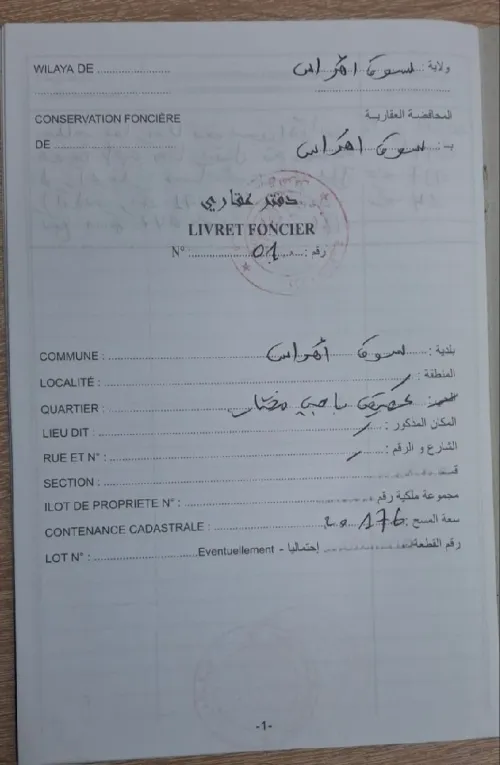 WILAYA DE ........................ سوق اهراس ولاية :
CONSERVATION FONCIÈRE المحافظة العقارية
DE ........................ سوق اهراس بـ :
دفتر عقاري
LIVRET FONCIER
N° : ........................ 01 ........................ رقم :
COMMUNE : ........................ سوق أهراس ........................ بلدية :
LOCALITÉ : ........................ / ........................ المنطقة :
QUARTIER : ........................
LIEU DIT : ........................ / ........................ المكان المذكور :
RUE ET N° : ........................ / ........................ الشارع و الرقم :
SECTION : ........................ قسم
ILOT DE PROPRIETE N° : ........................ مجموعة ملكية رقم
CONTENANCE CADASTRALE : ........................ 176 سعة المسح :
LOT N° : ........................ Eventuellement - إحتماليا ........................ رقم القطعة
-1-